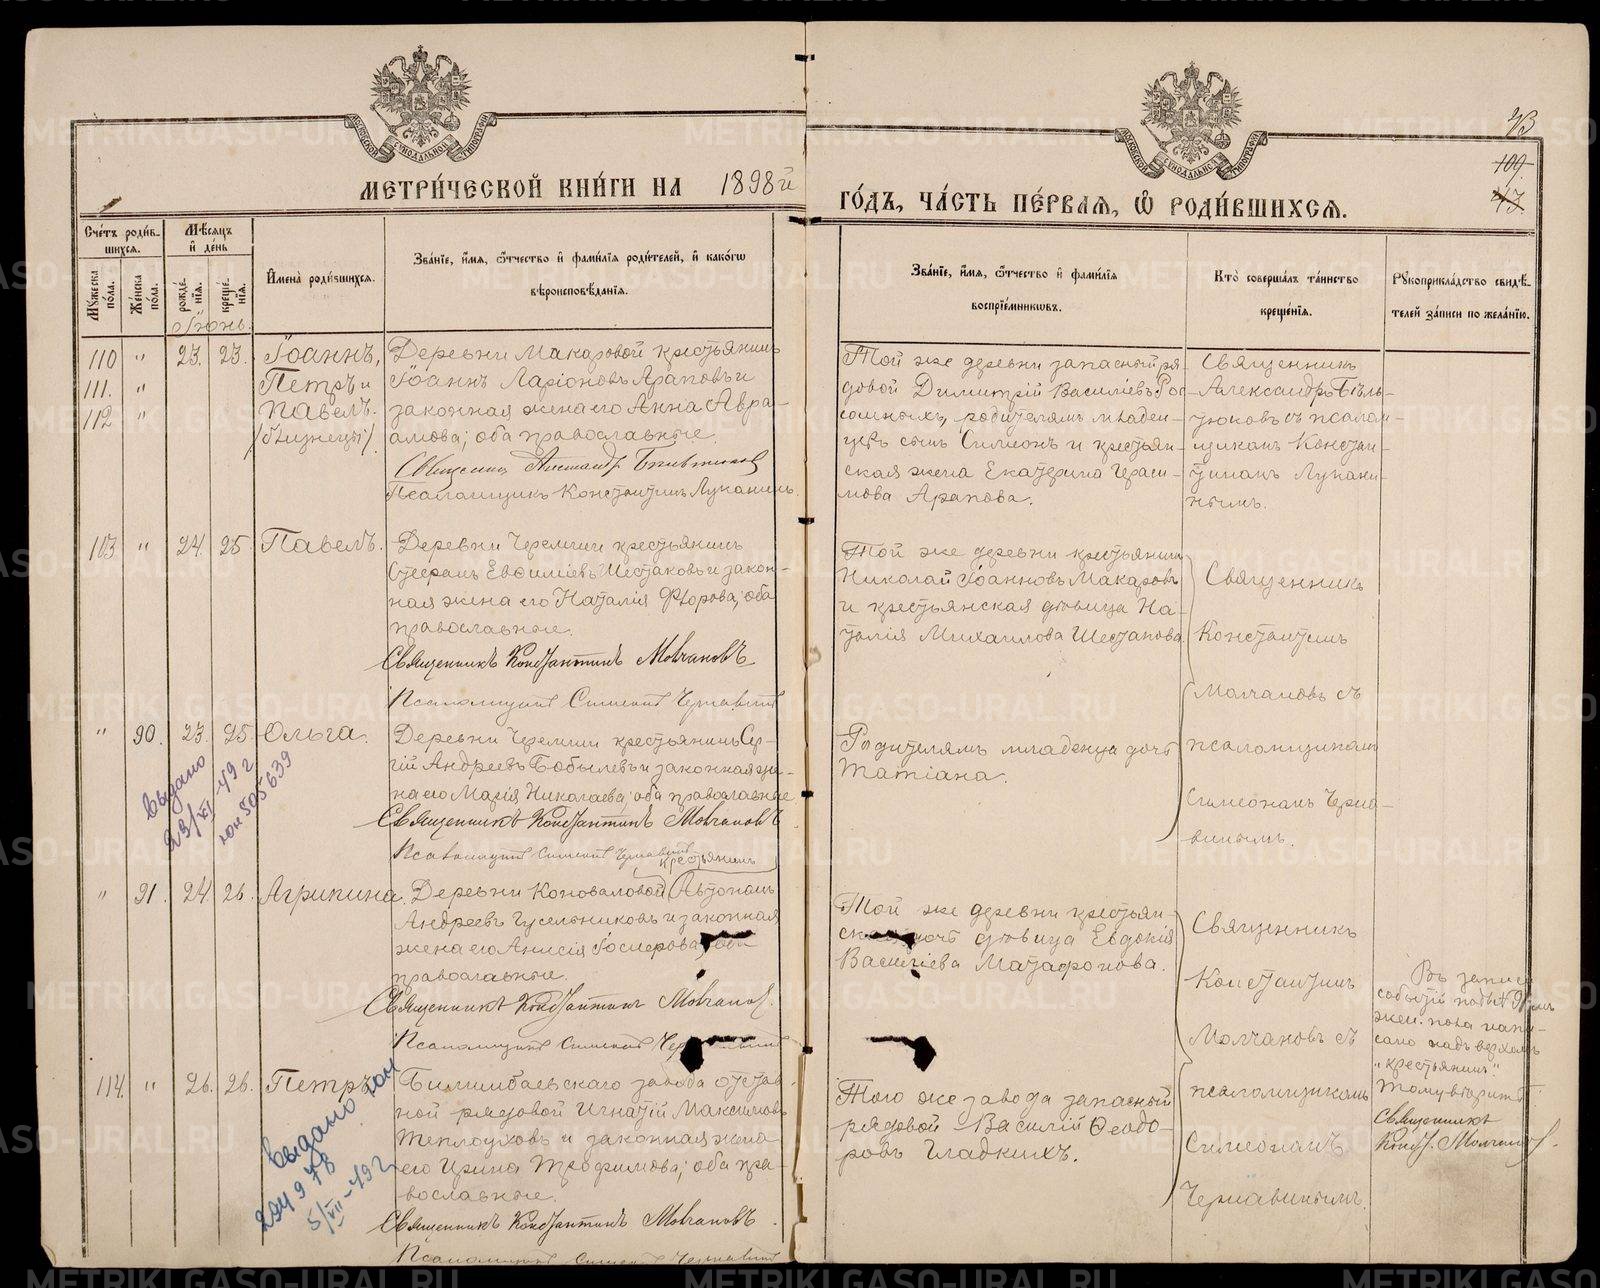 МЕТРИ́ЧЕСКОЙ КНИ́ГИ НА 1898й
ГО́ДЪ, ЧА́СТЬ ПЕ́РВАЯ, Ѽ РОДИ́ВШИХСЯ.
МОСКОВСКОЙ СѴНОДАЛЬНОЙ ТИПОГРАФІИ
МОСКОВСКОЙ СѴНОДАЛЬНОЙ ТИПОГРАФІИ
43
109
43
Сче́тъ роди́в-
шихся.
Мꙋ́жеска по́ла.
Же́нска по́ла.
Мѣ́сяцъ
и҆ де́нь
рожде́нїя.
креще́нїя.
И҆мена̀ роди́вшихся.
Зва́нїе, и҆́мя, ѻ҆́тчество и҆ фами́лїя роди́телей, и҆ како́гѡ
вѣроисповѣ́данїя.
Зва́нїе, и҆́мя, ѻ҆́тчество и҆ фами́лїя
воспрїе́мникѡвъ.
Кто̀ соверша́лъ та́инство
креще́нїя.
Рꙋкоприкла́дство свидѣ́-
телей за́писи по жела́нїю.
Іюнь.
110 " 23. 23. Іоаннъ,
111. " Петръ и
112 " Павелъ.
/близнецы/
Деревни Макаровой крестьянинъ
Іоаннъ Ларіоновъ Араповъ и
законная жена его Анна Авра-
амова; оба православные.
Священник Александр
Псаломщикъ Константинъ Лупанинъ.
Той же деревни запасный ря-
довой Димитрій Василіевъ Рос
сошныхъ, родителямъ младен-
цевъ сынъ Симеонъ и крестьян-
ская жена Екатерина Гераси-
мова Арапова.
Священникъ
Александръ
съ псалом
щикомъ Констан-
тиномъ Лупани-
нымъ.
113 " 24. 25. Павелъ.
Деревни Черемши крестьянинъ
Стефанъ Евѳиміевъ Шестаковъ и закон-
ная жена его Наталія Фророва; оба
православные.
Священникъ Константинъ Молчановъ
Псаломщикъ Симеонъ Чернавинъ
Той же деревни крестьянинъ
Николай Іоанновъ Макаровъ
и крестьянская дѣвица На-
талія Михаилова Шестакова
Священникъ
Константинъ
Молчановъ съ
псаломщикомъ
Симеономъ Черна-
винымъ.
" 90. 23. 25. Ольга.
Деревни Черемши крестьянинъ Сер-
гій Андреевъ Бобылевъ и законная же-
на его Марія Николаева; оба православные
Священникъ Константинъ Молчановъ
Псаломщикъ Симеонъ Чернавинъ
Родителямъ младенца дочь
Татіана.
Выдано
23/XI-49 г
юп 505639
" 91. 24. 26. Агрипина.
крестьянинъ
Деревни Коноваловой Автономъ
Андреевъ Гусельниковъ и законная
жена его Анисія
православные.
Священникъ Константинъ Молчанов.
Псаломщикъ Симеонъ
Той же деревни крестьян-
дочь дѣвица Евдокія
Василіева Матафонова.
Священникъ
Константинъ
Молчановъ съ
псаломщикомъ
Симеономъ
Чернавинымъ.
Въ записи
событій подъ № 91мъ
жен. пола напи-
сано надъ верхомъ
"крестьянинъ"
тому вѣрить
Священникъ
Конст. Молчанов.
114. " 26. 26. Петръ.
Билимбаевскаго завода отстав-
ной рядовой Игнатій Максимовъ
Теплоуховъ и законная жена
его Ирина Трофимова; оба пра-
вославные.
Священникъ Константинъ Молчановъ.
Псаломщикъ Симеонъ Чернавинъ
Того же завода запасный
рядовой Василій Ѳеодо-
ровъ Гладкихъ.
Выдано юп
294978
5/VII-49 г.
METRIKI.GASO-URAL.RU